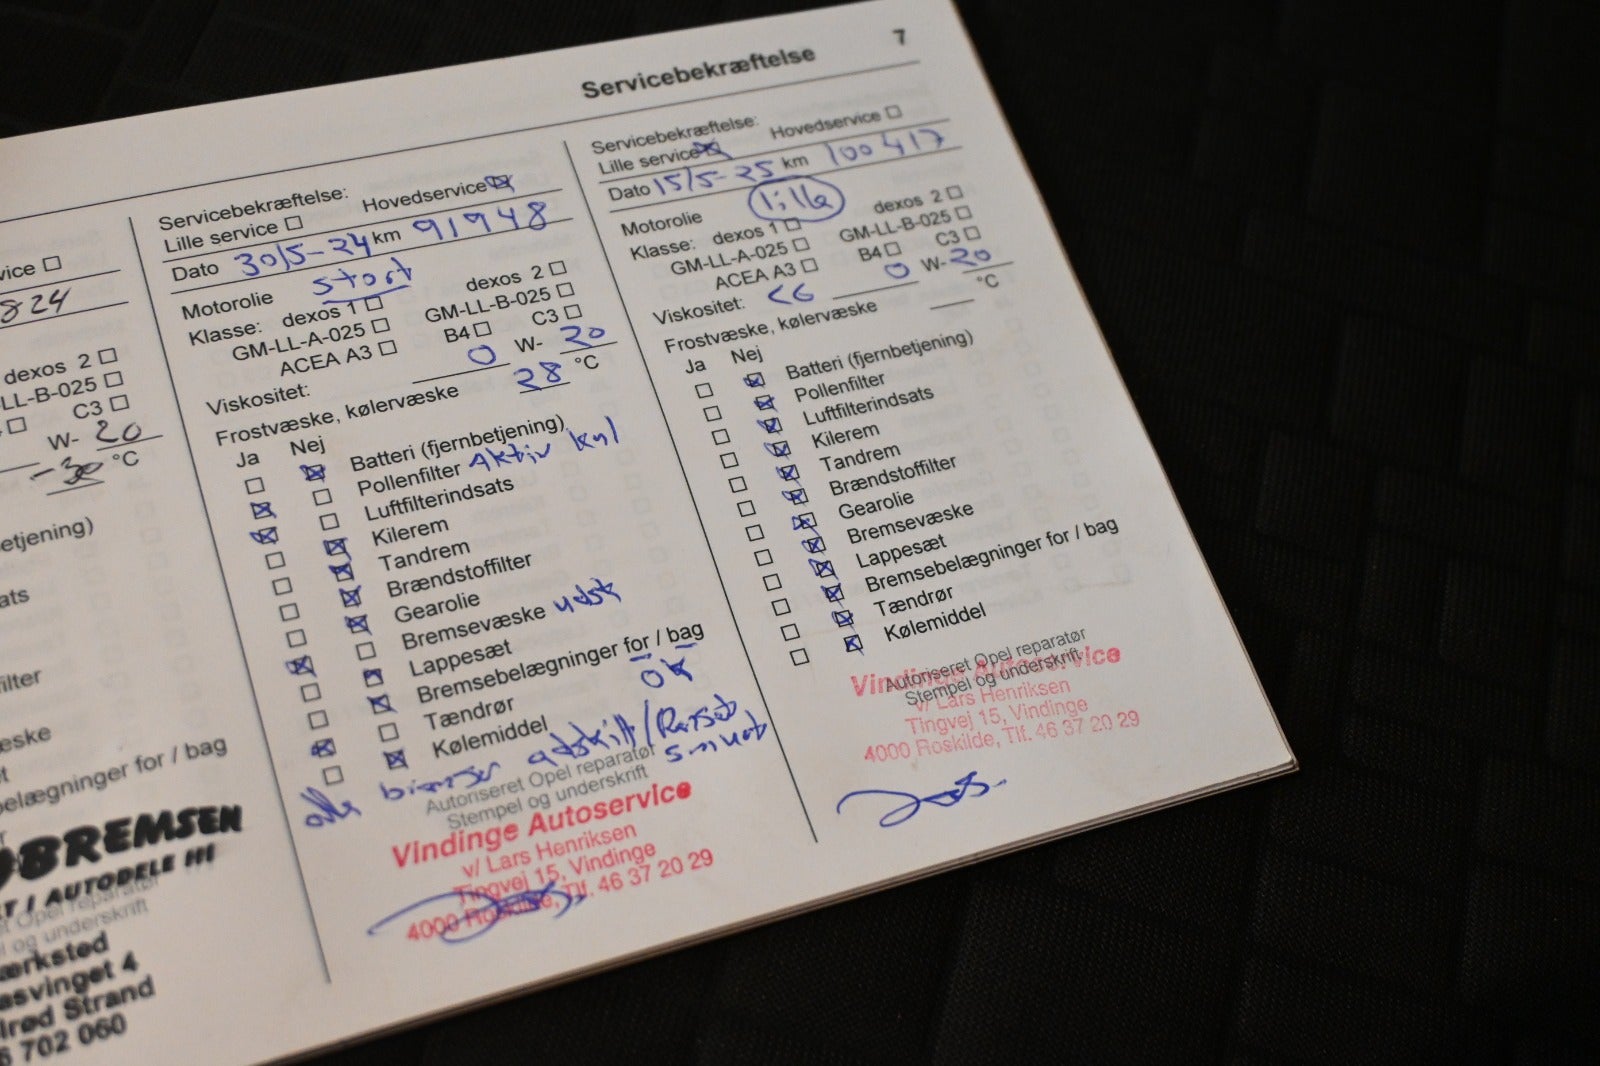 7
Servicebekræftelse
vice
824
dexos 2
LL-B-025
C3
W- 20
-30 °C
etjening)
ats
ilter
æske
belægninger for / bag
OBREMSEN
T I AUTODELE
et Opel reparatør
og underskrift
ærksted
svinget 4
lrød Strand
702 060
Servicebekræftelse:
Lille service Hovedservice
Dato 30/5-24 km 91948
Motorolie stort
Klasse: dexos 1 dexos 2
GM-LL-A-025 GM-LL-B-025
ACEA A3 B4 C3
Viskositet: 0 W- 20
Frostvæske, kølervæske 28 °C
Ja Nej
Batteri (fjernbetjening)
Pollenfilter Aktiv kul
Luftfilterindsats
Kilerem
Tandrem
Brændstoffilter
Gearolie
Bremsevæske udsk
Lappesæt
Bremsebelægninger for / bag
OK
Tændrør
Kølemiddel
alle bremser adskilt/Renset
smurt
Autoriseret Opel reparatør
Stempel og underskrift
Vindinge Autoservice
v/ Lars Henriksen
Tingvej 15, Vindinge
4000 Roskilde, Tlf. 46 37 20 29
Servicebekræftelse:
Lille service Hovedservice
Dato 15/5-25 km 100417
Motorolie lille
Klasse: dexos 1 dexos 2
GM-LL-A-025 GM-LL-B-025
ACEA A3 B4 C3
Viskositet: 0 W- 20
Frostvæske, kølervæske °C
Ja Nej
Batteri (fjernbetjening)
Pollenfilter
Luftfilterindsats
Kilerem
Tandrem
Brændstoffilter
Gearolie
Bremsevæske
Lappesæt
Bremsebelægninger for / bag
Tændrør
Kølemiddel
Autoriseret Opel reparatør
Stempel og underskrift
Vindinge Autoservice
v/ Lars Henriksen
Tingvej 15, Vindinge
4000 Roskilde, Tlf. 46 37 20 29